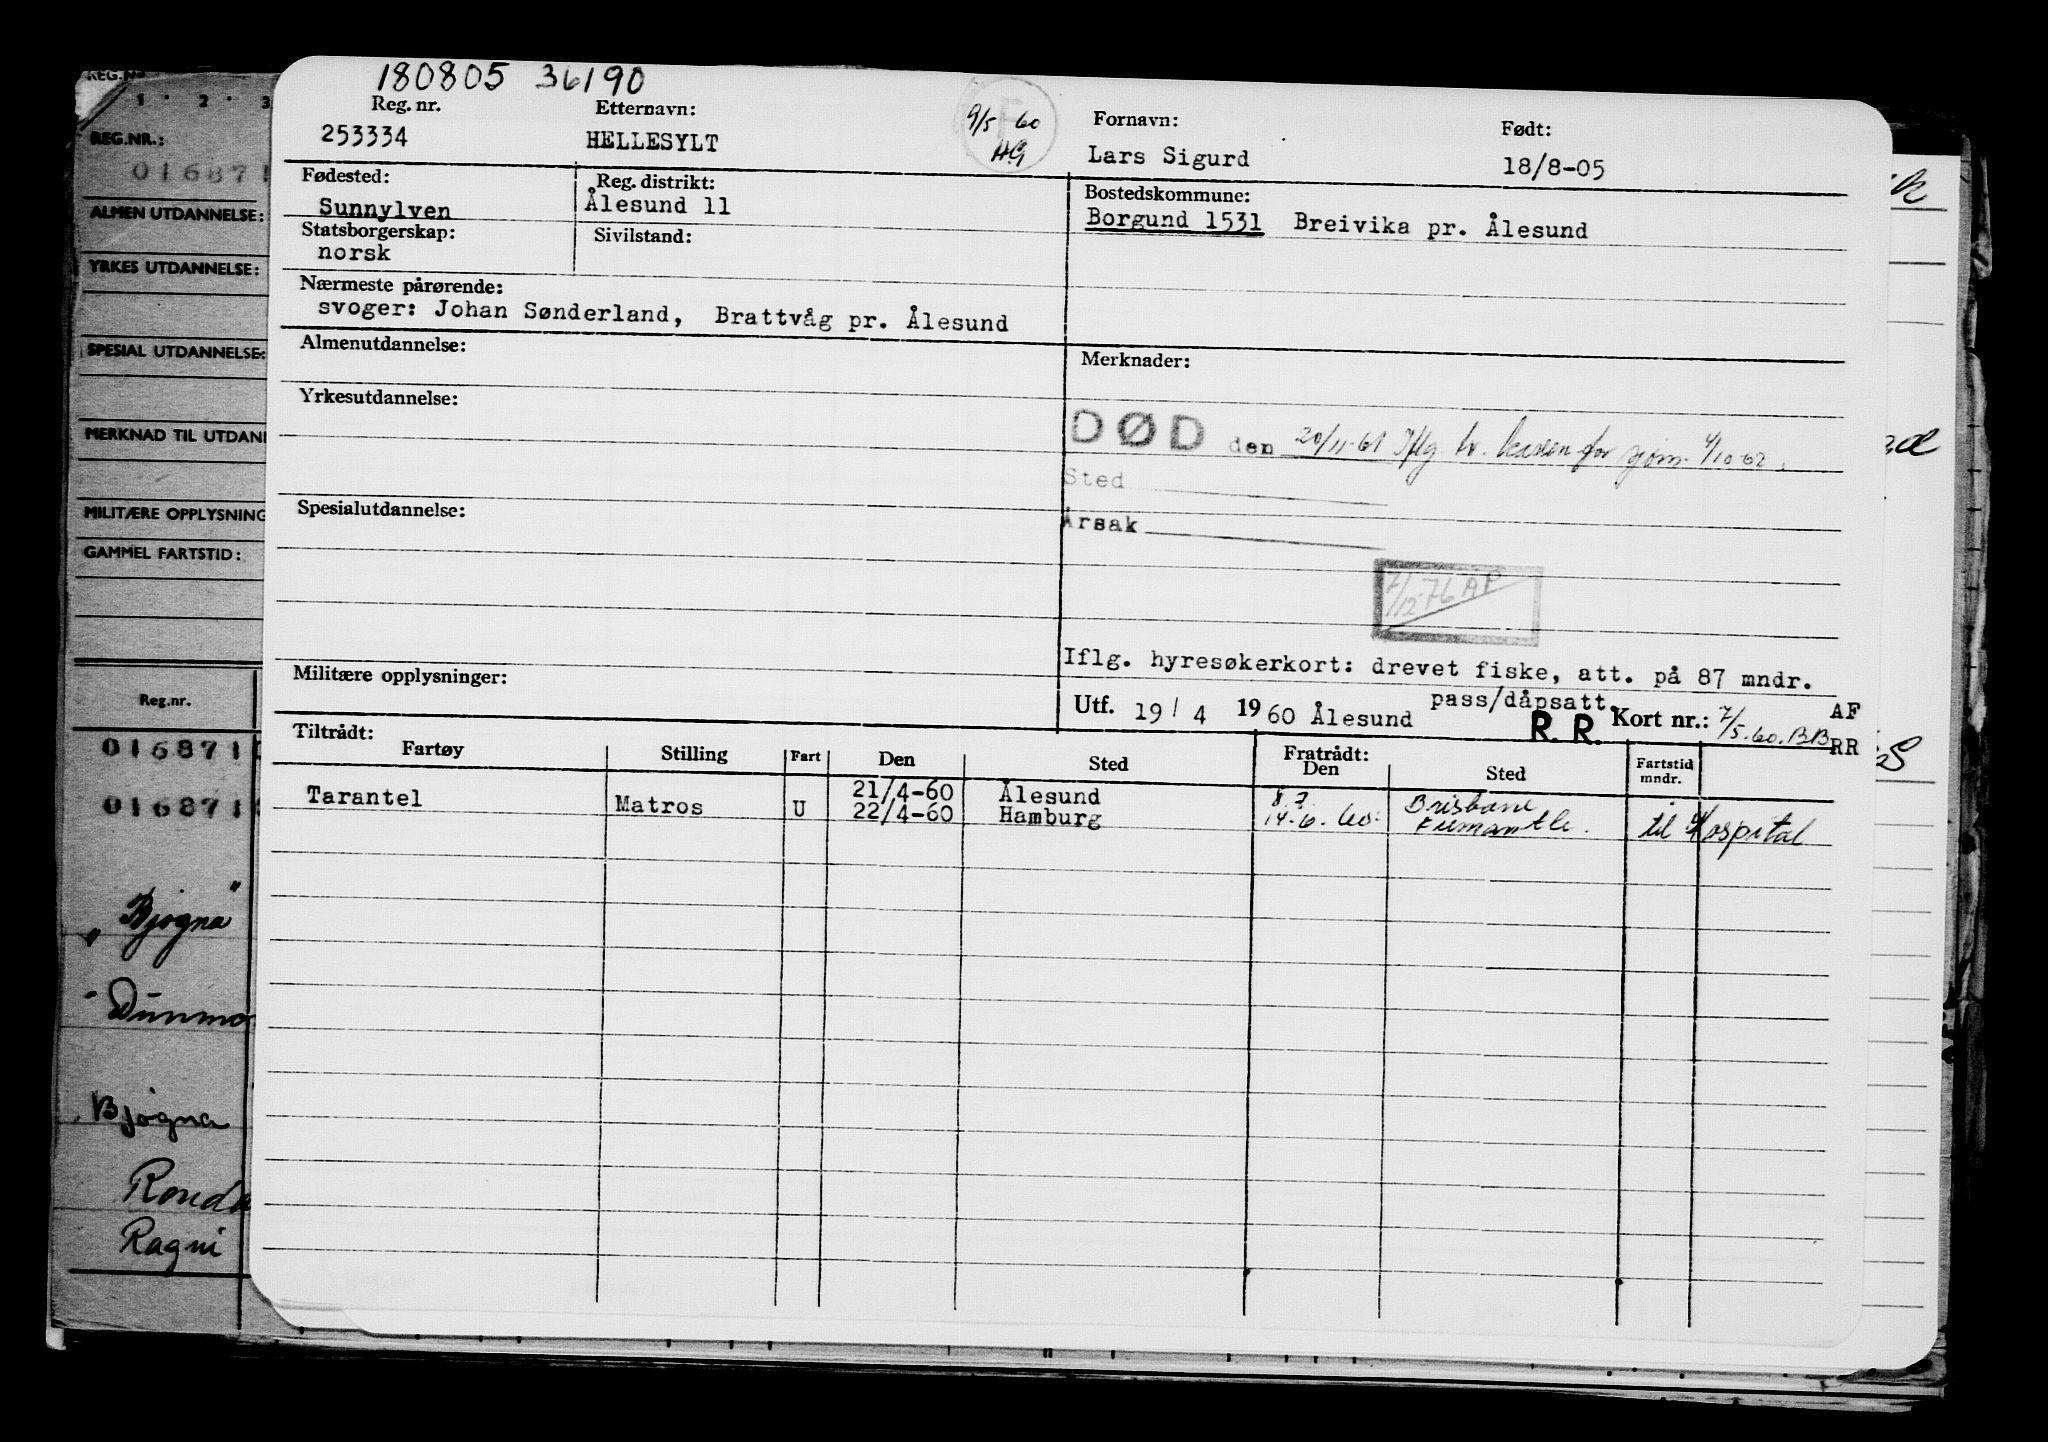 180805 36190
Reg. nr. Etternavn: Fornavn: Født:
253334 HELLESYLT 9/5 60 HG Lars Sigurd 18/8-05
Fødested: Reg. distrikt: Bostedskommune:
Sunnylven Ålesund 11 Borgund 1531 Breivika pr. Ålesund
Statsborgerskap: Sivilstand:
norsk
Nærmeste pårørende:
svoger: Johan Sønderland, Brattvåg pr. Ålesund
Almenutdannelse: Merknader:
Yrkesutdannelse:
DØD den 20/11-61 Iflg br. kassen for sjøm. 4/10-62.
Sted
Spesialutdannelse:
Årsak
7/12-76 AF
Iflg. hyresøkerkort: drevet fiske, att. på 87 mndr.
Militære opplysninger: pass/dåpsatt.
Utf. 19/4 1960 Ålesund R. R. Kort nr.: 7/5.60.BB AF
RR
Tiltrådt: Fratrådt:
Fartøy Stilling Fart Den Sted Den Sted Fartstid mndr.
Tarantel Matros U 21/4-60 Ålesund 8.7. Brisbane
22/4-60 Hamburg 14-6.60. Fremantle. til Hospital
REG.NR
1 2 3
REG.NR.:
016871
ALMEN UTDANNELSE:
YRKES UTDANNELSE:
SPESIAL UTDANNELSE:
MERKNAD TIL UTDAN
MILITÆRE OPPLYSNING
GAMMEL FARTSTID:
Reg.nr.
016871
016871
"Bjogna"
"Dunmo
Bjogna
Ronda
Ragni